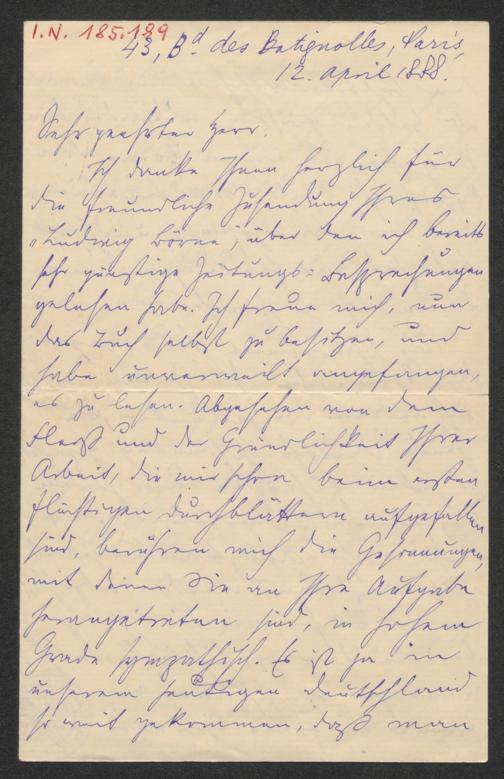 I.N. 185.189
43, Bd des Batignolles, Paris,
12. April 1888.
Sehr geehrter Herr.
Ich danke Ihnen herzlich für
die freundliche Zusendung Ihres
„Ludwig Börne", über den ich bereits
sehr günstige Zeitungs=Besprechungen
gelesen habe. Ich freue mich, nun
das Buch selbst zu besitzen, und
habe unverweilt angefangen,
es zu lesen. Abgesehen von dem
Fleiß und der Gründlichkeit Ihrer
Arbeit, die mir schon beim ersten
flüchtigen Durchblättern aufgefallen
sind, berühren mich die Gesinnungen,
mit denen Sie an Ihre Aufgabe
herangetreten sind, in hohem
Grade sympathisch. Es ist ja in
unserem heutigen Deutschland
so weit gekommen, daß man